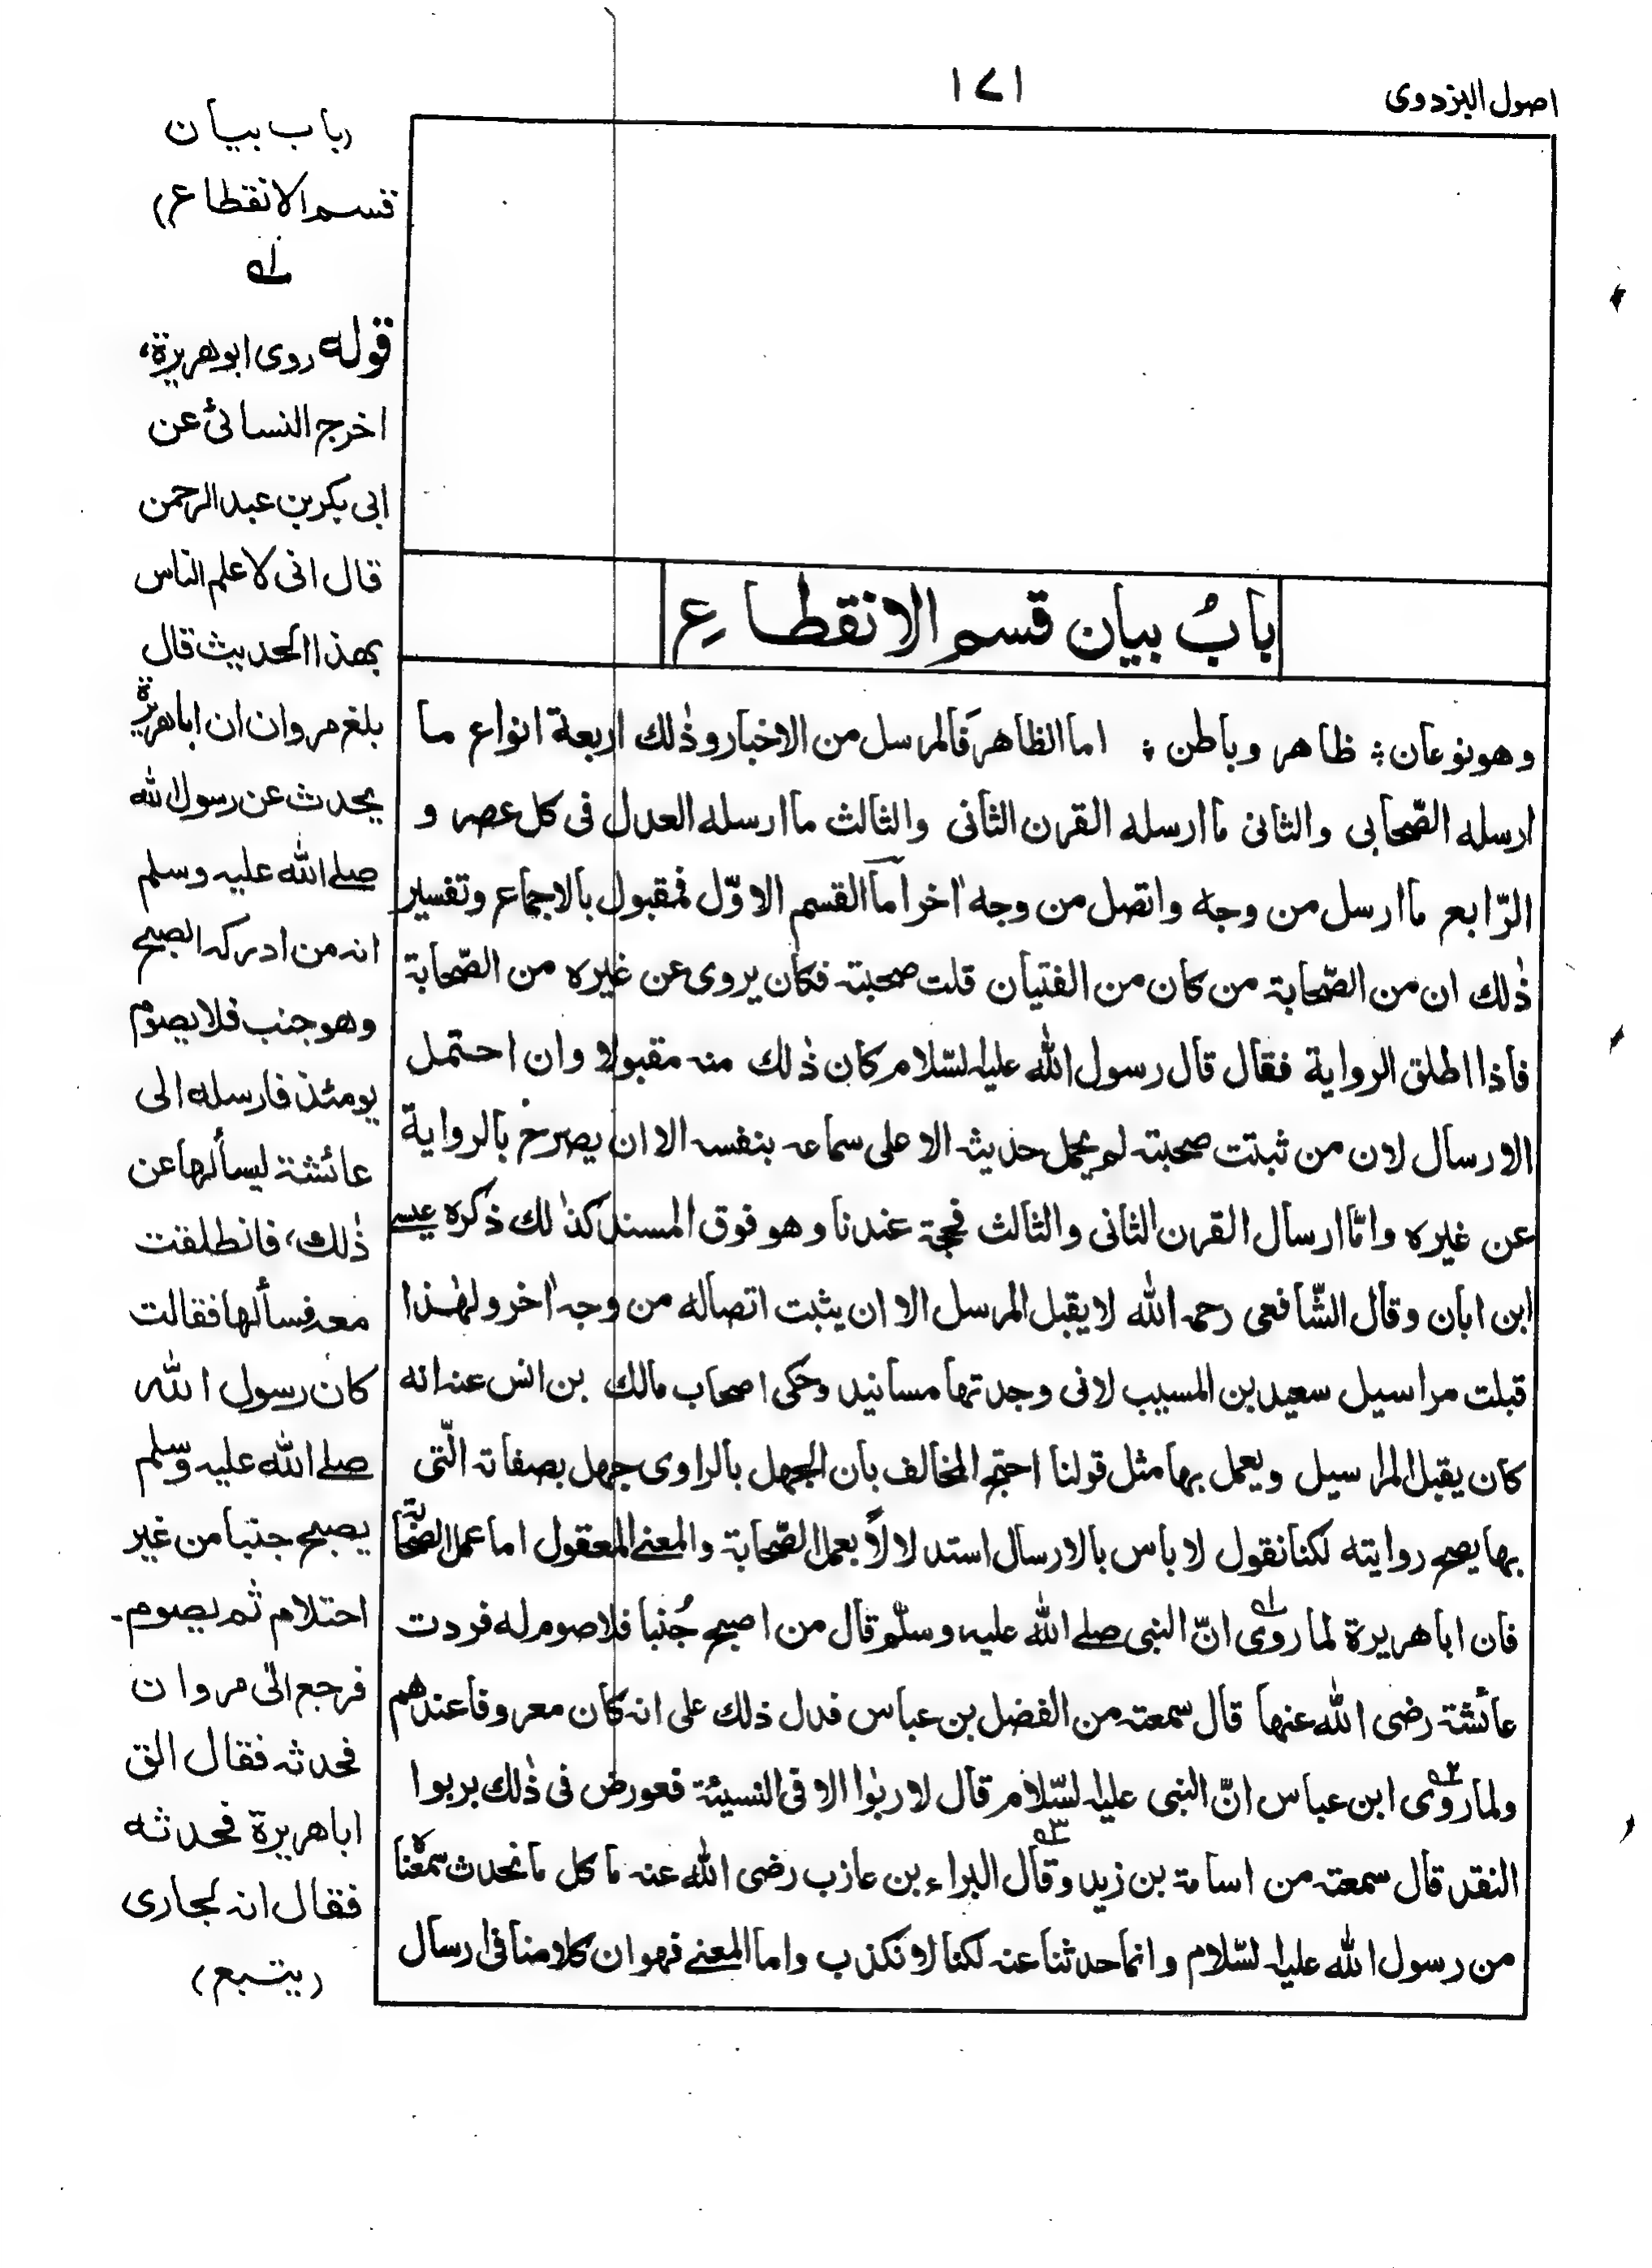 اصول البزدوی
۱۷۱
باب بیان قسم الانقطاع
وهونوعان ؛ ظاهر وباطن ؛ اما الظاهر فالمرسل من الاخبار وذٰلك اربعة انواع ما
ارسله الصّحابی والثانی ما ارسله القرن الثانی والثالث ما ارسله العدل فی كل عصر و
الرّابع ما ارسل من وجه واتصل من وجه اٰخر اما القسم الاوّل فمقبول بالاجماع وتفسیر
ذٰلك ان من الصّحابة من كان من الفتیان قلت صحبته فكان یروی عن غیره من الصّحابة
فاذا اطلق الروایة فقال قال رسول الله علیه السّلام كان ذٰلك منه مقبولا وان احتمل
الارسال لان من ثبتت صحبته لم یحمل حدیثه الا علی سماعه بنفسه الا ان یصرح بالروایة
عن غیره وامّا ارسال القرن الثانی والثالث فحجة عندنا وهو فوق المسند كذٰلك ذكره عیسے
ابن ابان وقال الشّافعی رحمه الله لا یقبل المرسل الا ان یثبت اتصاله من وجه اٰخر ولهٰذا
قبلت مراسیل سعید بن المسیب لانی وجدتها مسانید وحكی اصحاب مالك بن انس عنه انه
كان یقبل المراسیل ویعمل بها مثل قولنا احتج المخالف بان الجهل بالراوی جهل بصفاته الّتی
بها یصح روایته لكنا نقول لا باس بالارسال استدلالاً بعمل الصّحابة والمعنے المعقول اما عمل الصّحابة
فان ابا هریرة لما روی۱ انّ النبی صلے الله علیه وسلّم قال من اصبح جُنبا فلا صوم له فردت
عائشة رضی الله عنها قال سمعته من الفضل بن عباس فدل ذلك علی انه كان معروفا عندهم
ولما روی۲ ابن عباس انّ النبی علیه السّلام قال لا ربٰوا الا فی النسیئة فعورض فی ذٰلك بربوا
النقد قال سمعته من اسامة بن زید وقال۳ البراء بن عازب رضی الله عنه ما كل ما نحدث سمعناه
من رسول الله علیه السّلام وانما حدثنا عنه لكنا لا نكذب واما المعنے فهو ان كلامنا فی ارسال
(باب بیان
قسم الانقطاع)
۱
قوله روی ابوهریرة،
اخرج النسائی عن
ابی بكر بن عبد الرحمن
قال انی لاعلم الناس
بهذا الحدیث قال
بلغ مروان ان اباهریرة
یحدث عن رسول الله
صلے الله علیه وسلم
انه من ادركه الصبح
وهو جنب فلا یصوم
یومئذ فارسله الی
عائشة لیسألها عن
ذٰلك، فانطلقت
معه فسألها فقالت
كان رسول الله
صلے الله علیه وسلم
یصبح جنبا من غیر
احتلام ثم یصوم۔
فرجع الی مروان
فحدثه فقال الق
اباهریرة فحدثه
فقال انه لجاری
(یتبع)